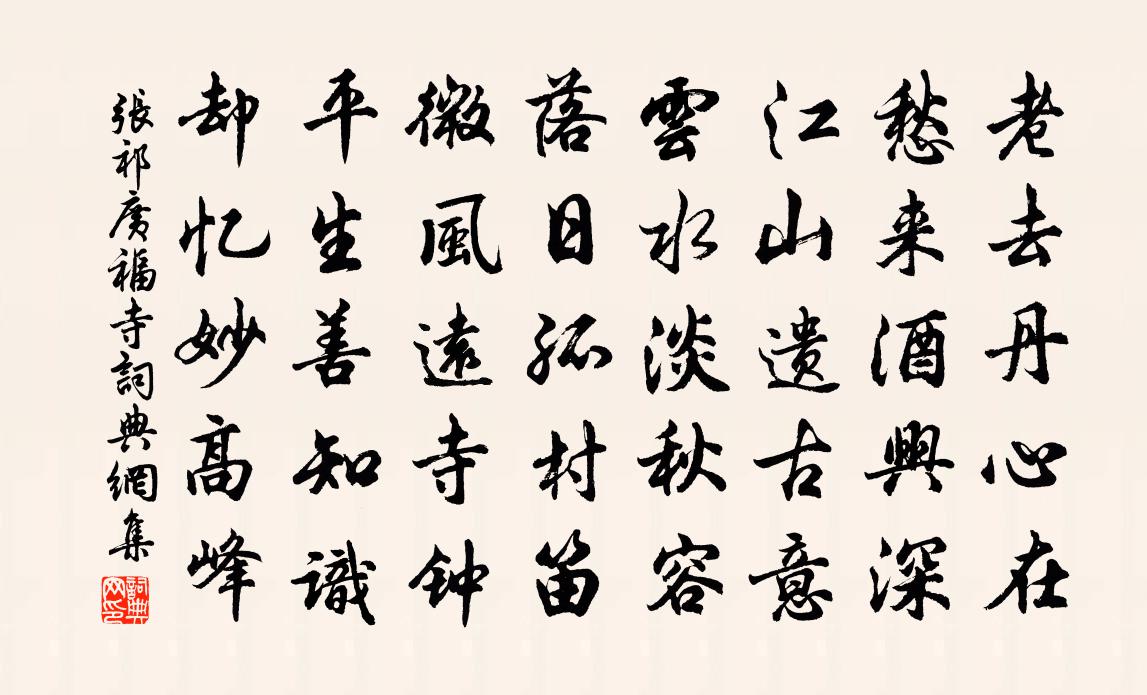 老去丹心在
愁来酒興深
江山遗古意
雲水淡秋容
落日孤村笛
微風遠寺钟
平生善知識
却忆妙高峰
張祁廣福寺詞典網集
詞典网印